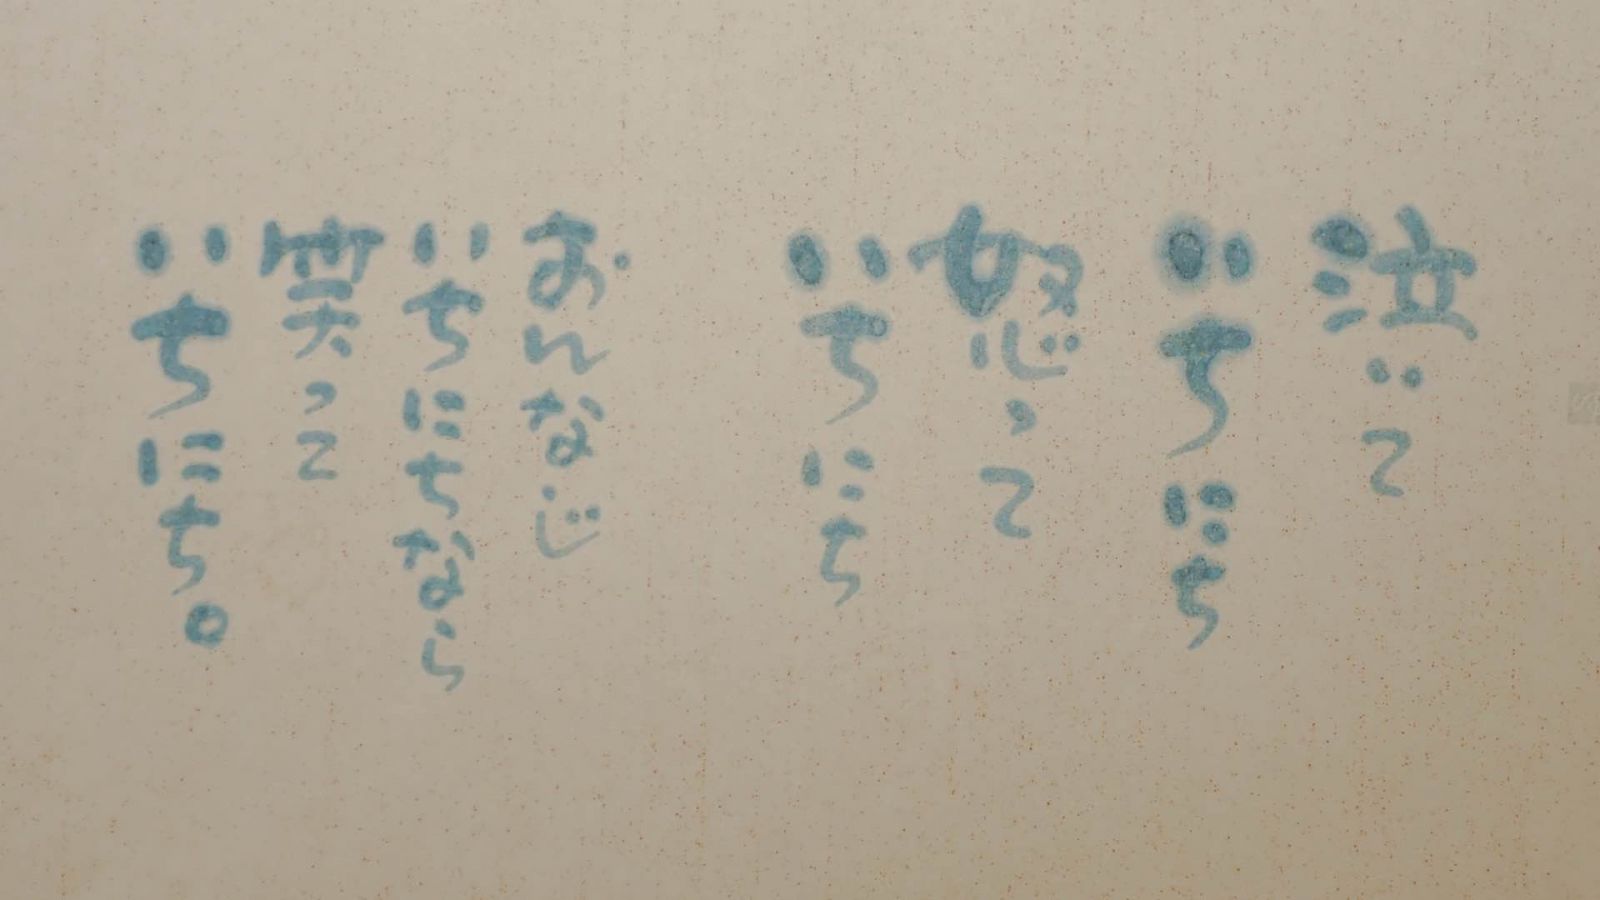 泣いて
いちにち
怒って
いちにち
おんなじ
いちにちなら
笑って
いちにち。